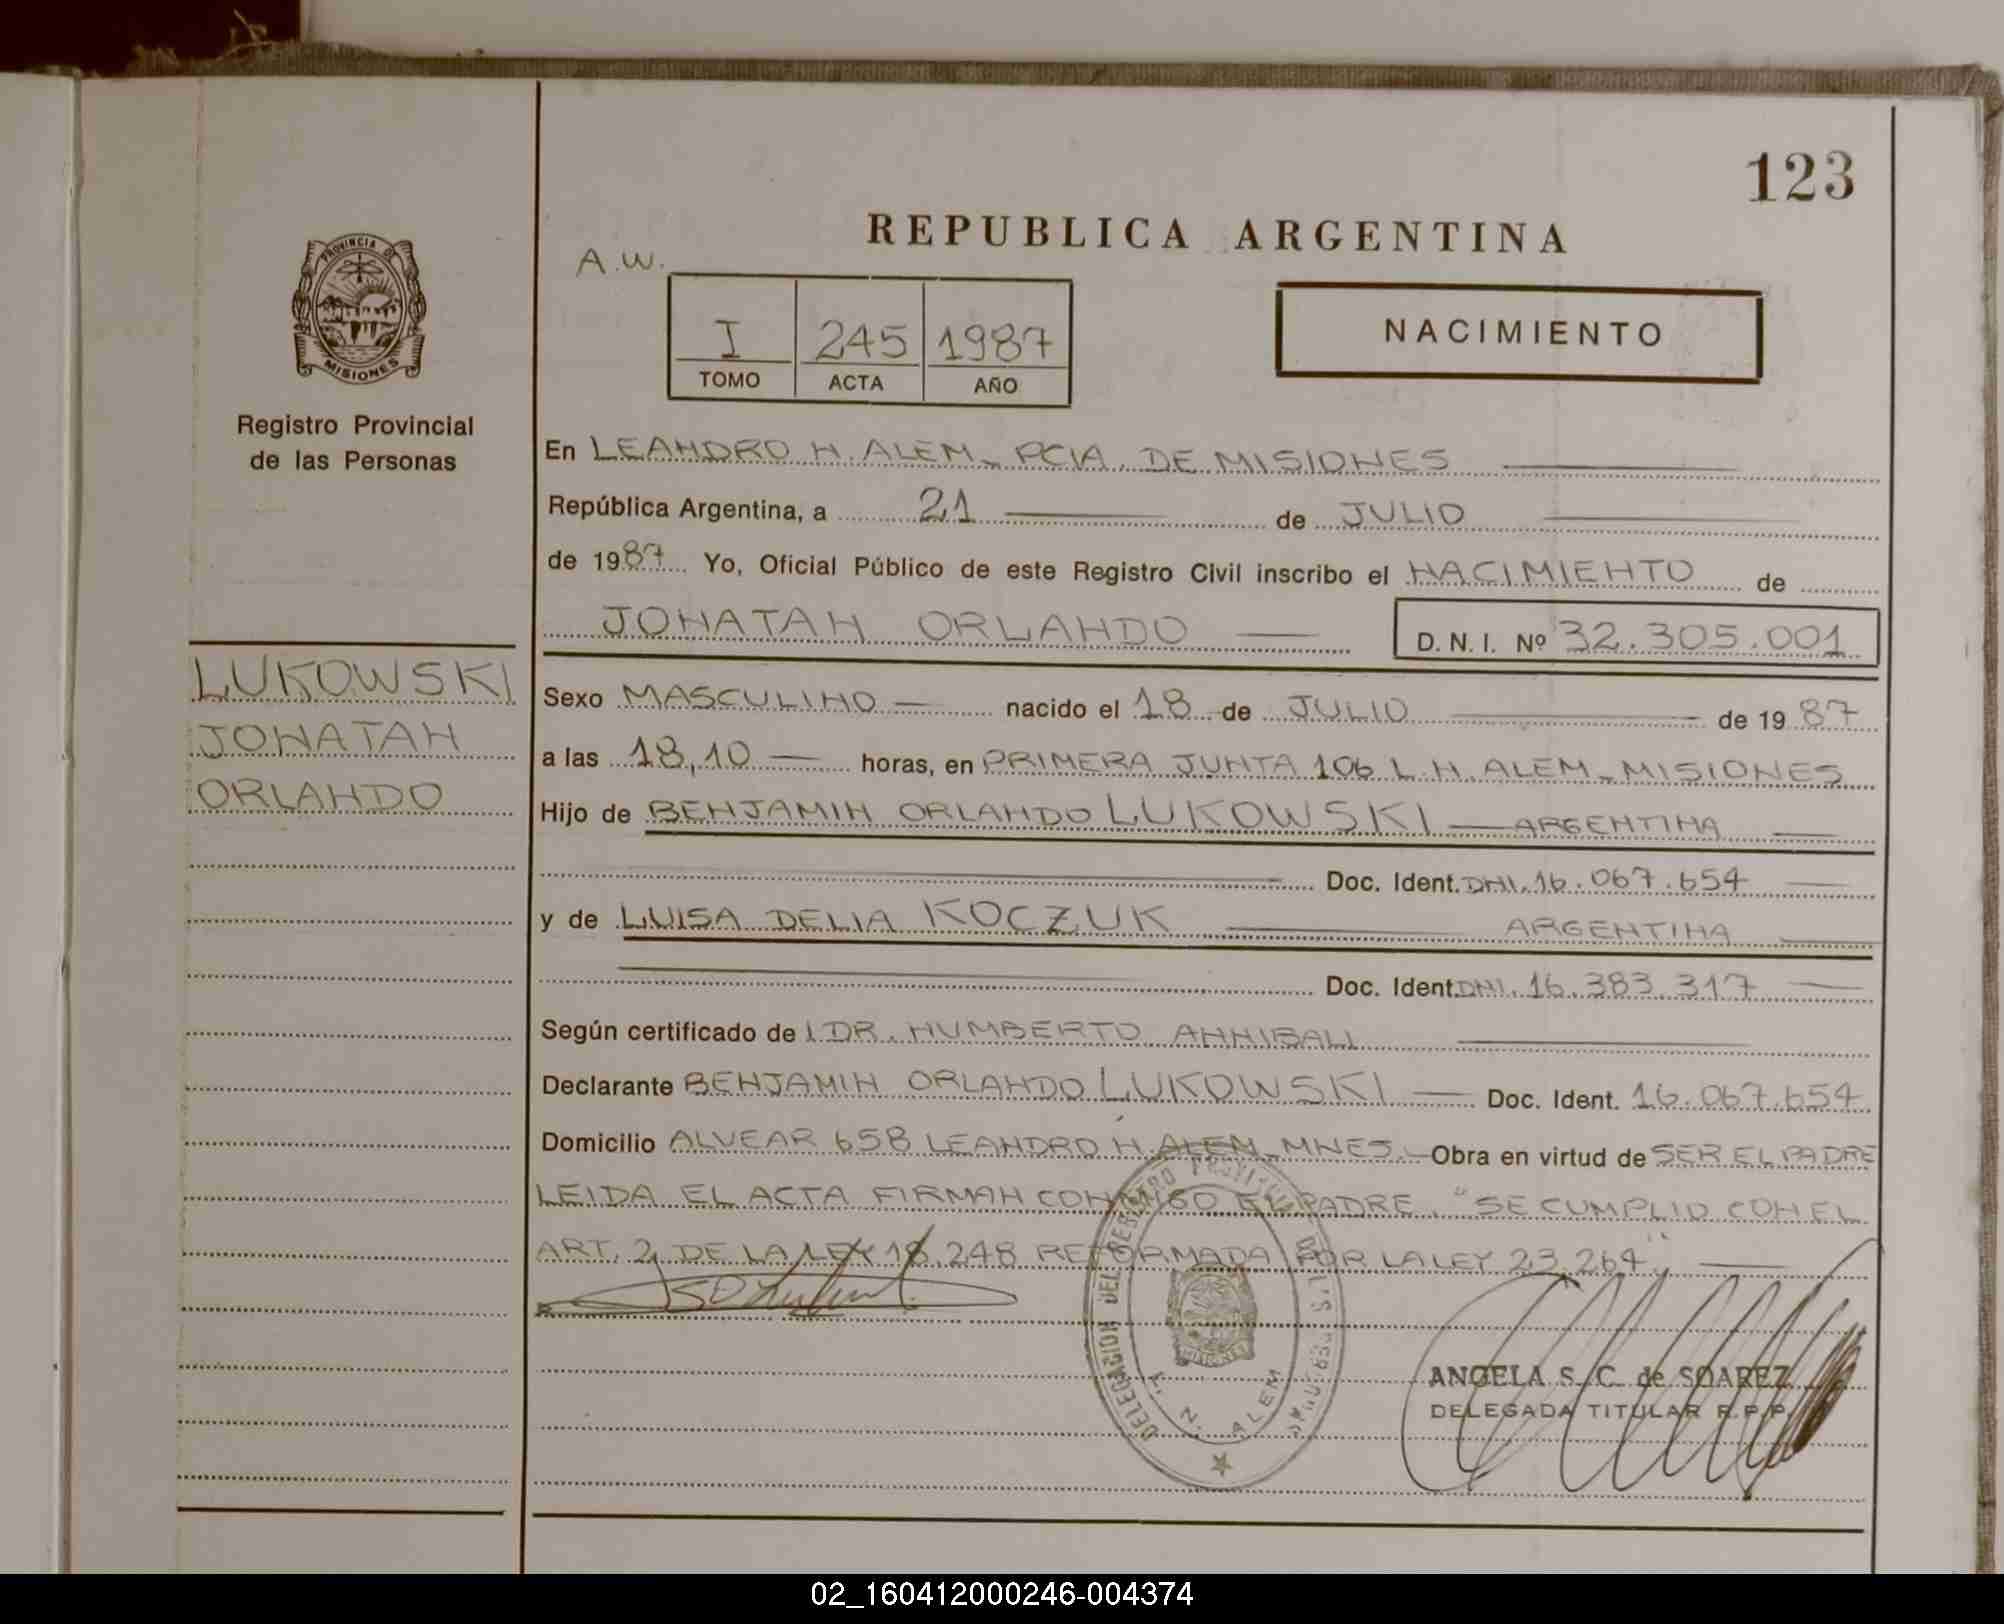 123
REPUBLICA ARGENTINA
A.W.
PROVINCIA DE
MISIONES
I 245 1987
TOMO ACTA AÑO
NACIMIENTO
Registro Provincial
de las Personas
En LEANDRO N. ALEM - PCIA. DE MISIONES
República Argentina, a 21 de JULIO
de 1987 Yo, Oficial Público de este Registro Civil inscribo el NACIMIENTO de
JONATAN ORLANDO D.N.I. Nº 32.305.001
LUKOWSKI
JONATAN
ORLANDO
Sexo MASCULINO nacido el 18 de JULIO de 1987
a las 18,10 horas, en PRIMERA JUNTA 106 L.N. ALEM - MISIONES
Hijo de BENJAMIN ORLANDO LUKOWSKI ARGENTINA
Doc. Ident. DNI. 16.067.654
y de LUISA DELIA KOCZUK ARGENTINA
Doc. Ident. DNI. 16.383.317
Según certificado de l DR. HUMBERTO ANNIBALI
Declarante BENJAMIN ORLANDO LUKOWSKI Doc. Ident. 16.067.654
Domicilio ALVEAR 658 LEANDRO N. ALEM - MNES. Obra en virtud de SER EL PADRE
LEIDA EL ACTA FIRMAN CONMIGO EL PADRE. "SE CUMPLIO CON EL
ART. 2 DE LA LEY 18.248 REFORMADA POR LA LEY 23.264".
DELEGACION DEL REGISTRO
L. N. ALEM
ANGELA S. C. de SOAREZ
DELEGADA TITULAR R.P.P.
02_160412000246-004374